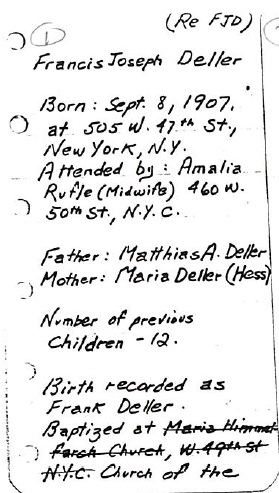 (Re FJD)
1
Francis Joseph Deller
Born: Sept. 8, 1907,
at 505 W. 47th St.,
New York, N.Y.
Attended by: Amalia
Rufle (Midwife) 460 W.
50th St., N.Y.C.
Father: Matthias A. Deller
Mother: Maria Deller (Hess)
Number of previous
Children - 12.
Birth recorded as
Frank Deller.
Baptized at Maria Himmel-
farth Church, W. 49th St
N.Y.C. Church of the